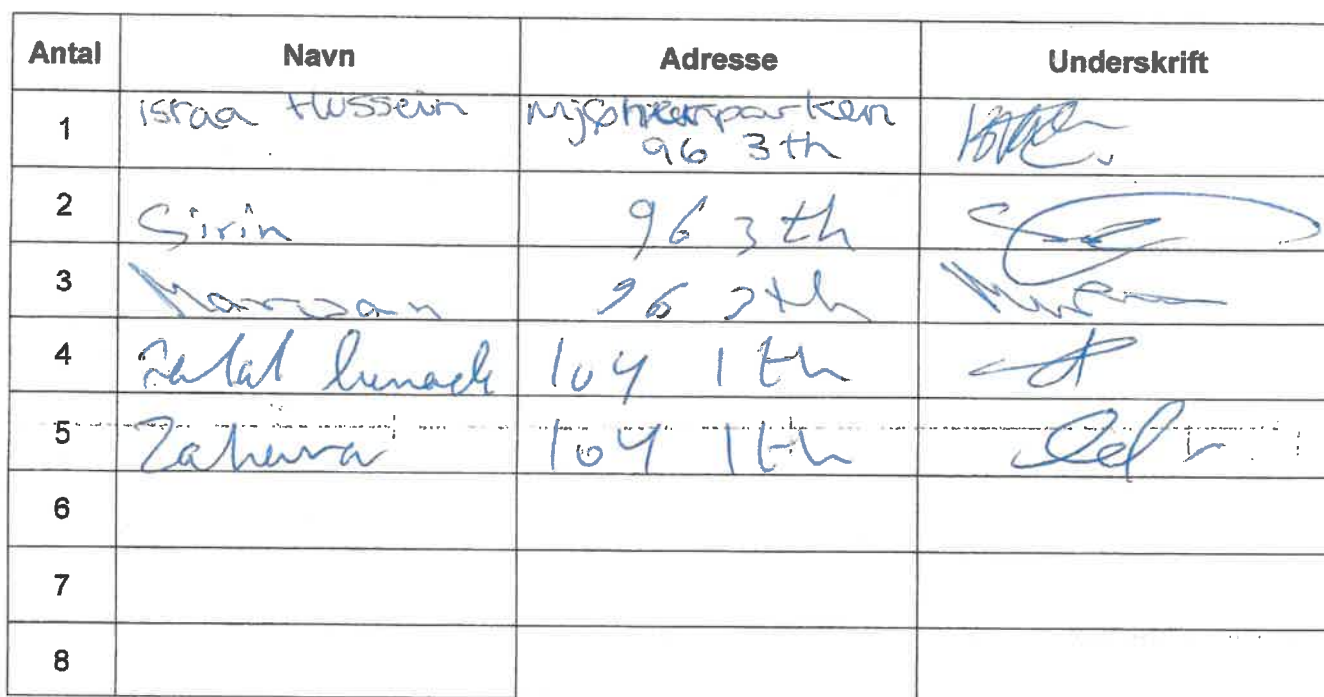 Antal Navn Adresse Underskrift
1 israa Hussein Mjølnerparken
96 3th
2 Sirin 96 3 th
3 96 3th
4 104 1 th
5 Zahera 104 1th
6
7
8